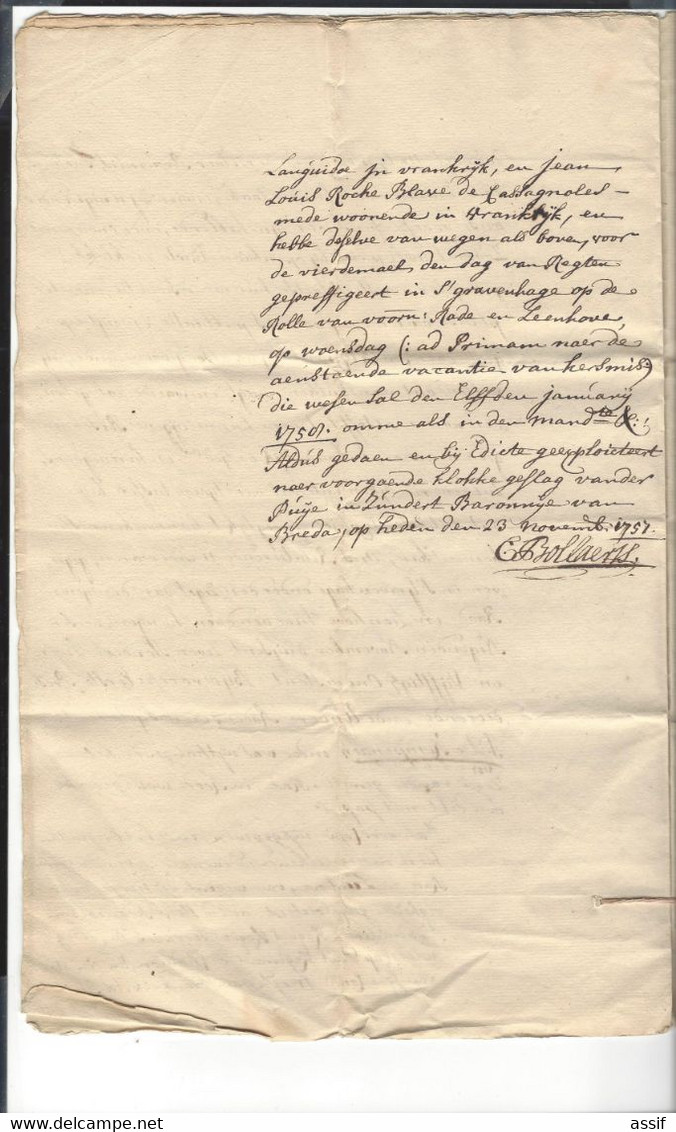 Languidoc jn vrankrijk, en jean
Louis Roche Blave de Cassagnoles -
mede woonende in Vrankrijk, en
hebbe deselve van wegen als boven, voor
de vierdemael den dag van Regten
geprefigeert in S'gravenhage op de
Rolle van voorn: Rade en Leenhove,
op woensdag (: ad Primam naer de
aenstaende vacantie van kersmis:)
die wesen sal den Elffden january
1758. omme als in den mandte &:!
Aldus gedaen en bij Edicte geexploicteert
naer voorgaende klokke geslag vander
Puije in Zundert Baronnije van
Breda, op heden den 23 novemb. 1757.
C Bollaerts.
delcampe.net
assif